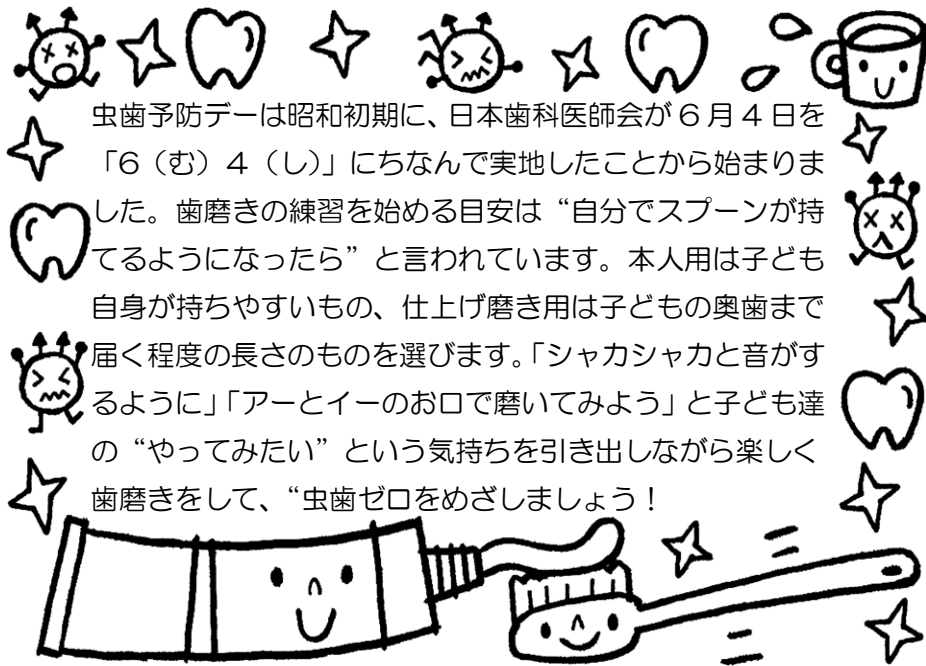 虫歯予防デーは昭和初期に、日本歯科医師会が６月４日を
「６（む）４（し）」にちなんで実地したことから始まりま
した。歯磨きの練習を始める目安は“自分でスプーンが持
てるようになったら”と言われています。本人用は子ども
自身が持ちやすいもの、仕上げ磨き用は子どもの奥歯まで
届く程度の長さのものを選びます。「シャカシャカと音がす
るように」「アーとイーのお口で磨いてみよう」と子ども達
の“やってみたい”という気持ちを引き出しながら楽しく
歯磨きをして、“虫歯ゼロをめざしましょう！